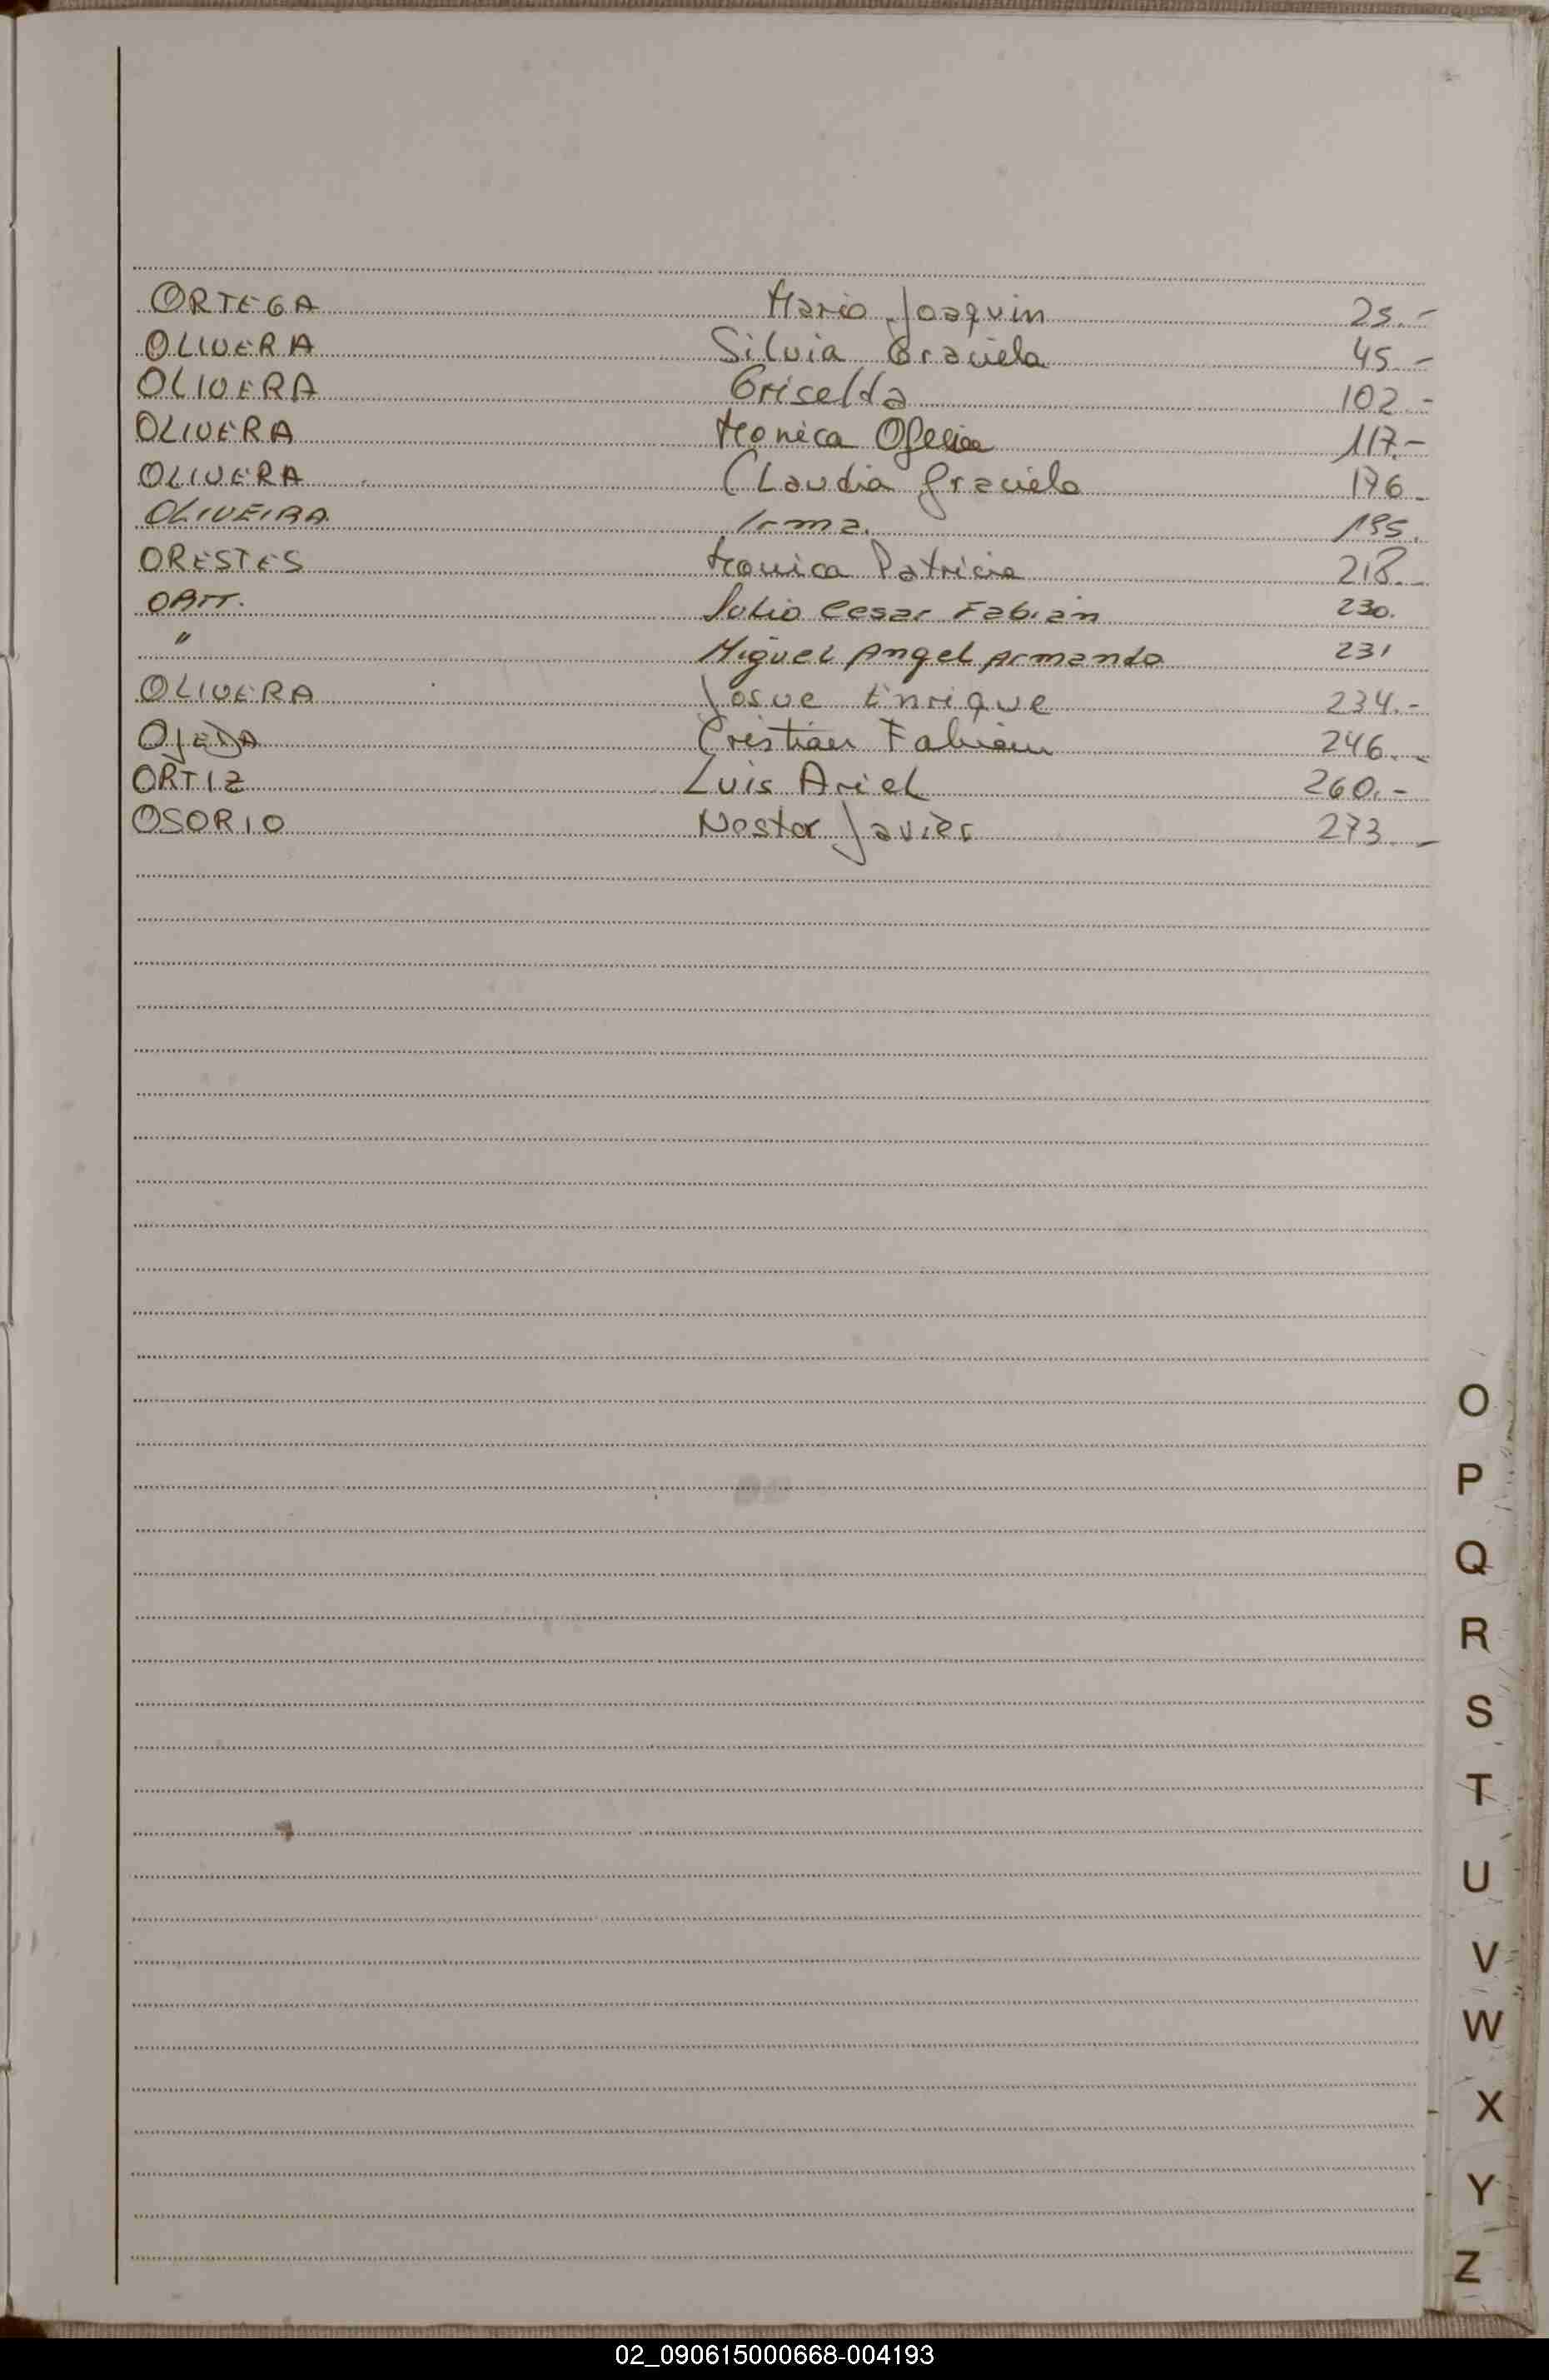 ORTEGA Mario Joaquin 25.-
OLIVERA Silvia Graciela 45.-
OLIVERA Griselda 102.-
OLIVERA Monica Ofelia 117.-
OLIVERA Claudia Graciela 176.-
OLIVEIRA Irma. 195.
ORESTES Monica Patricia 218.-
Julio Cesar Fabian 230.
" Miguel Angel Armando 231
OLIVERA Josue Enrique 234.-
OJEDA Cristian Fabian 246.-
ORTIZ Luis Ariel 260.-
OSORIO Nestor Javier 273.-
O
P
Q
R
S
T
U
V
W
X
Y
Z
02_090615000668-004193